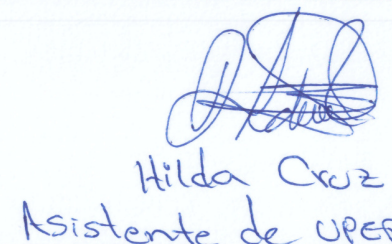 Hilda Cruz
Asistente de UPEP